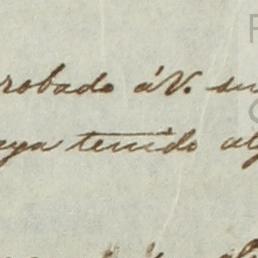 robado á V. su
aya tenido alg